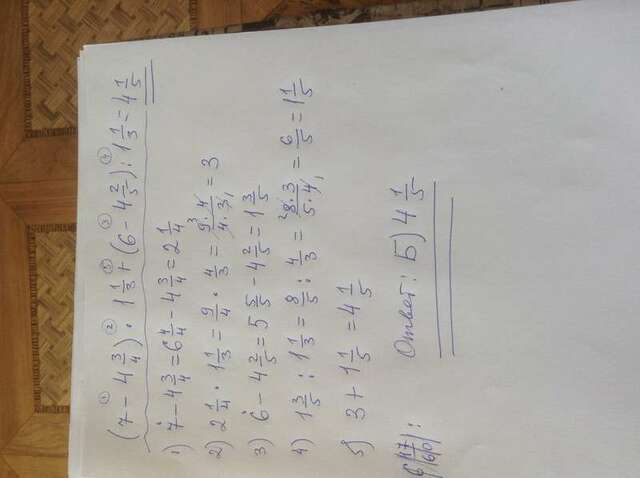 (7 - 4 3/4) · 1 1/3 + (6 - 4 2/5) : 1 1/3 = 4 1/5
1) 7 - 4 3/4 = 6 4/4 - 4 3/4 = 2 1/4
2) 2 1/4 · 1 1/3 = 9/4 · 4/3 = 9·4/4·3 = 3
3) 6 - 4 2/5 = 5 5/5 - 4 2/5 = 1 3/5
4) 1 3/5 : 1 1/3 = 8/5 : 4/3 = 8·3/5·4 = 6/5 = 1 1/5
5) 3 + 1 1/5 = 4 1/5
Ответ: Б) 4 1/5